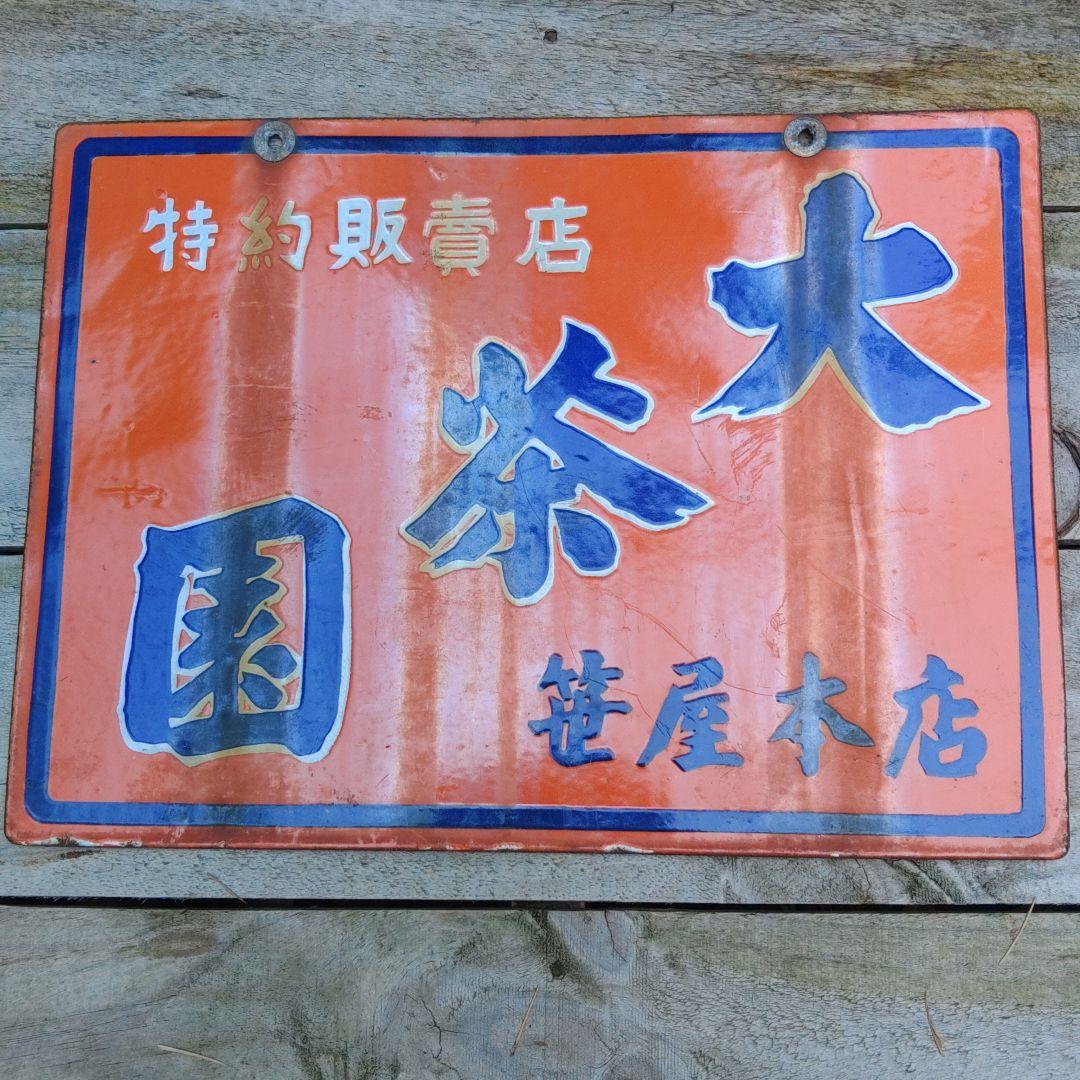 特約販賣店
大茶園
笹屋本店